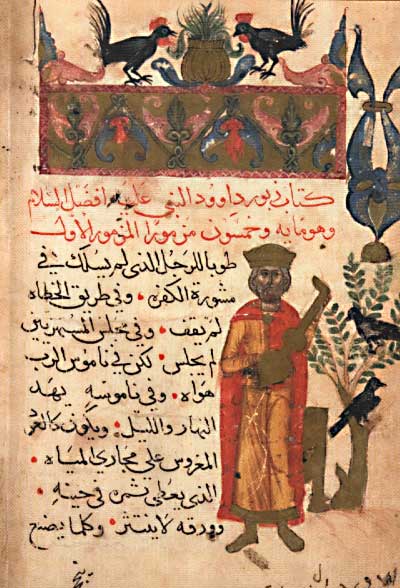 كتاب زبور داوود النبي عليه افضل السلام
وهو مايه وخمسون مزمورا المزمور الاول
طوبا للرجل الذي لم يسلك في
مشورة الكفره وفي طريق الخطاه
لم يقف • وفي مجلس المستهزيين
لم يجلس • لكن في ناموس الرب
هواه • وفي ناموسه يهد
النهار والليل • ويكون كالعود
المغروس على مجاري المياه •
الذي يعطي ثمرته في حينه •
وورقه لا ينتثر • وكلما يصنع
ينجح